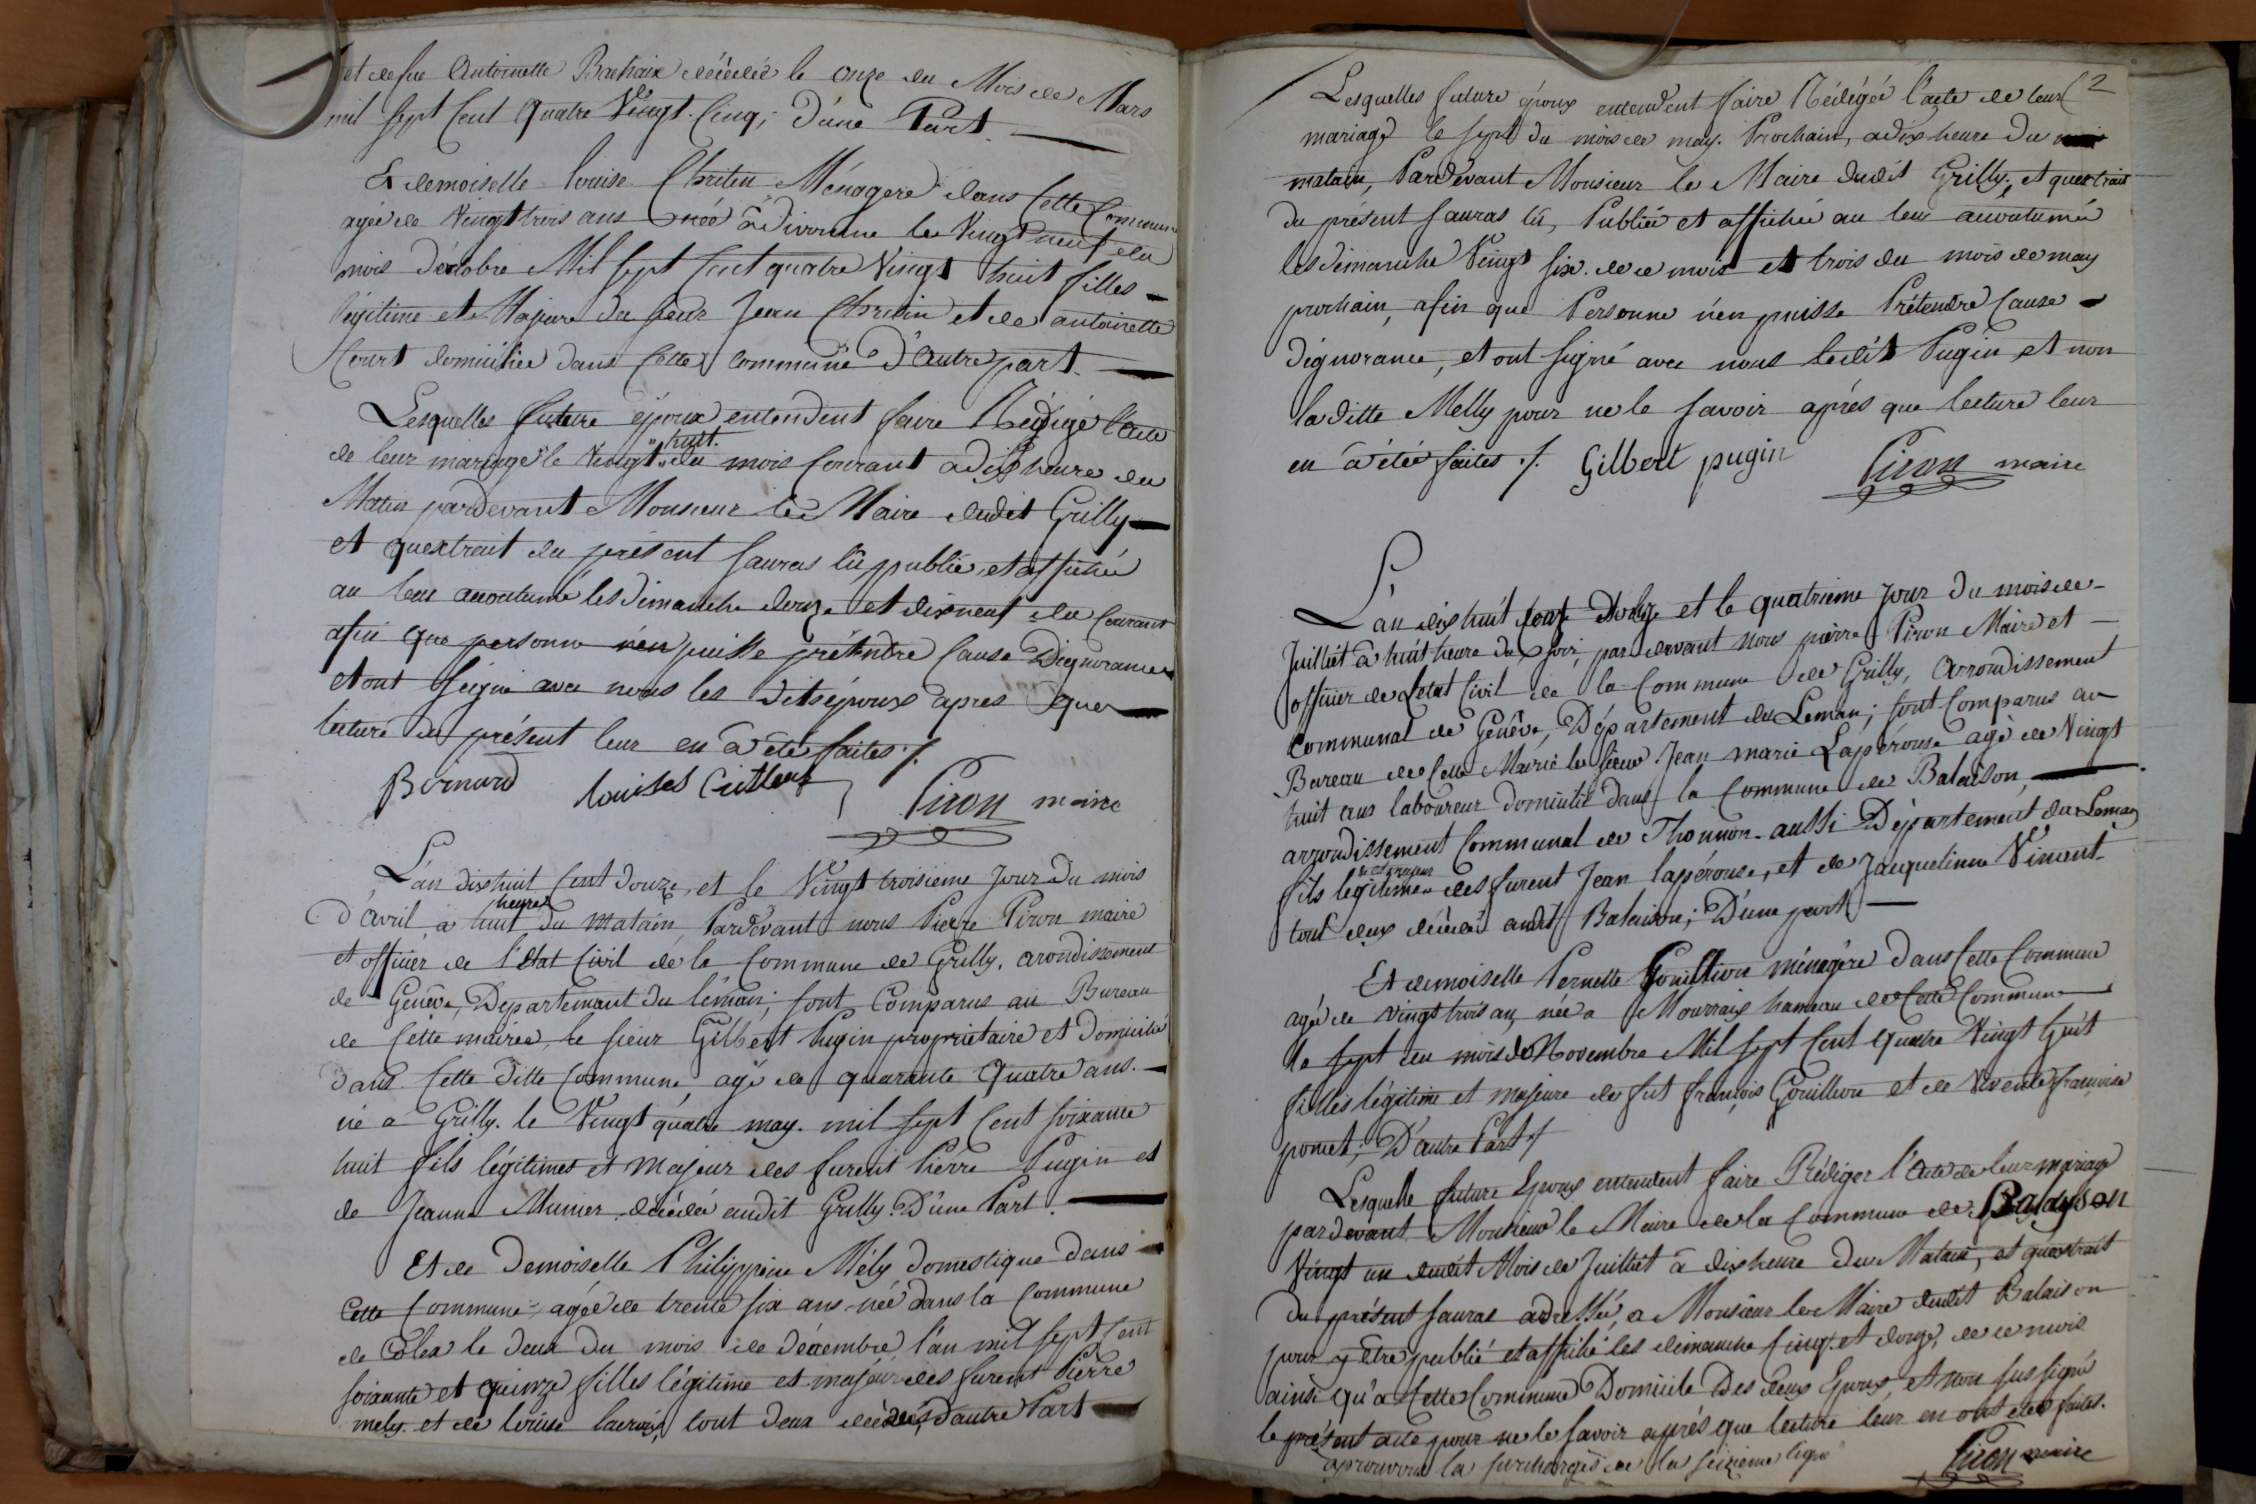 et de feu Antoinette Bachaix décédée le onze du Mois de Mars
mil sept Cent Quatre Vingt Cinq; D'une Part
Et demoiselle Louise Chretien Ménagere dans Cette Commune
agée de Vingt trois ans née à divonne le Vingt neuf du
mois d'octobre Mil Sept Cent quatre Vingt huit filles
légitime et Majure du sieur Jean Chretin et de antoinette
Court domiciliée dans Cette Commune D'autre part.
Lesquelles future époux entendent faire Rédigé l'acte
de leur mariage le Vingt huit du mois Courant à dix heure du
Matin pardevant Monsieur le Maire dudit Grilly
et quextrait du présent sauras lû, publié, et affiché
au leus accoutumé les dimanche douze et dixneuf du Courant
afin que personne n'en puisse prétendre Cause D'ignorance
et ont Seigné avec nous les Dits époux apres que
lecture du présent leur en à été faites ./.
Bernard Piron maire
L'an dixhuit Cent douze, et le Vingt troisieme Jour Du mois
D'avril, à huit heures du matain, Pardevant nous Pierre Piron maire
et officier de l'état Civil de la Commune de Grilly, arondissement
de Genêve, Departemant du léman; sont Comparus au Bureau
de Cette mairee, le sieur Gilbert Pugin propriétaire et Domicilié
dans Cette ditte Commune, agé de quarante Quatre ans.
né a Grilly. le Vingt quatre may. mil sept Cent soixante
huit fils légitimes et majeur des furent Piérre Pugin et
de Jeanne Munier décédé audit Grilly. D'une Part.
Et de Demoiselle Philippine Mély Domestique dans
Cette Commune agée de trente six ans née dans la Commune
de Colex le deux du mois de décembre l'an mil sept Cent
soixante et quinze filles légitime et majeur des furent Pierre
mely. et de louise lacroix, tout deux décédés, d'autre Part
2
Lesquelles future époux entendent faire Rédégée l'acte de leur
mariage le sept du mois de may. Prochain, a dix heure du
matain, Pardevant Monsieur le Maire dudit Grilly; et quextrait
du présent sauras lû, Publiée et affichée au leus accoutumé
les dimanche Vingt six. de ce mois et trois du mois de may
prochain, afin que Personne n'en puisse Prétendre Cause
d'ignorance, et ont signé avec nous ledit Pugin et non
la ditte Melly pour ne le savoir aprés que lecture leur
en à été faites ./. Gilbert pugin Piron maire
L'an dixhuit Cent douze et le quatrieme Jour Du mois de
Juilliét à huit heure du soir, par devant nous pierre Piron Maire et
officier de Letat Civil de la Commune de Grilly, arrondissement
Communal de Genêve, Département du Leman; sont Comparus au
Bureau de Cette Mairie le sieur Jean marie Lapérouse agé de Vingt
huit ans laboureur domicilié dans la Commune de Balaison,
arrondissement Communal de Thounon aussi Département du Leman
fils légitime et majeur des furent Jean lapérouse, et de Jacqueline Vincent
tout deux décédé audit Balaison; D'une part
Et demoiselle Pernette Gouillion ménagère dans Cette Commune
agée de vingt trois an, née a Mourraix hameau de Cette Commune
le sept du mois de Novembre Mil sept Cent Quatre Vingt huit
filles légitime et majeure de fut françois Gouillion et de Vivente françoise
ponet; D'autre Part ./.
Lesquelle future Epoux entendent faire Rédiger l'acte de leur mariage
pardevant Monsieur le Maire de la Commune de Balayson
Vingt un dudit Mois de Juilliét à dix heure du Matain, et quextrait
du présent sauras adressée, a Monsieur le Maire dudit Balaison
pour y être publié et affiché les dimanche Cinq. et douze, de ce mois
ainsi qu'a Cette Commune Domicile Des deux Epoux, et non sus signé
le présent acte pour ne le savoir aprés que lecture leur en ont étée faites.
aprouvons la surchargés de la seizieme ligne Piron maire